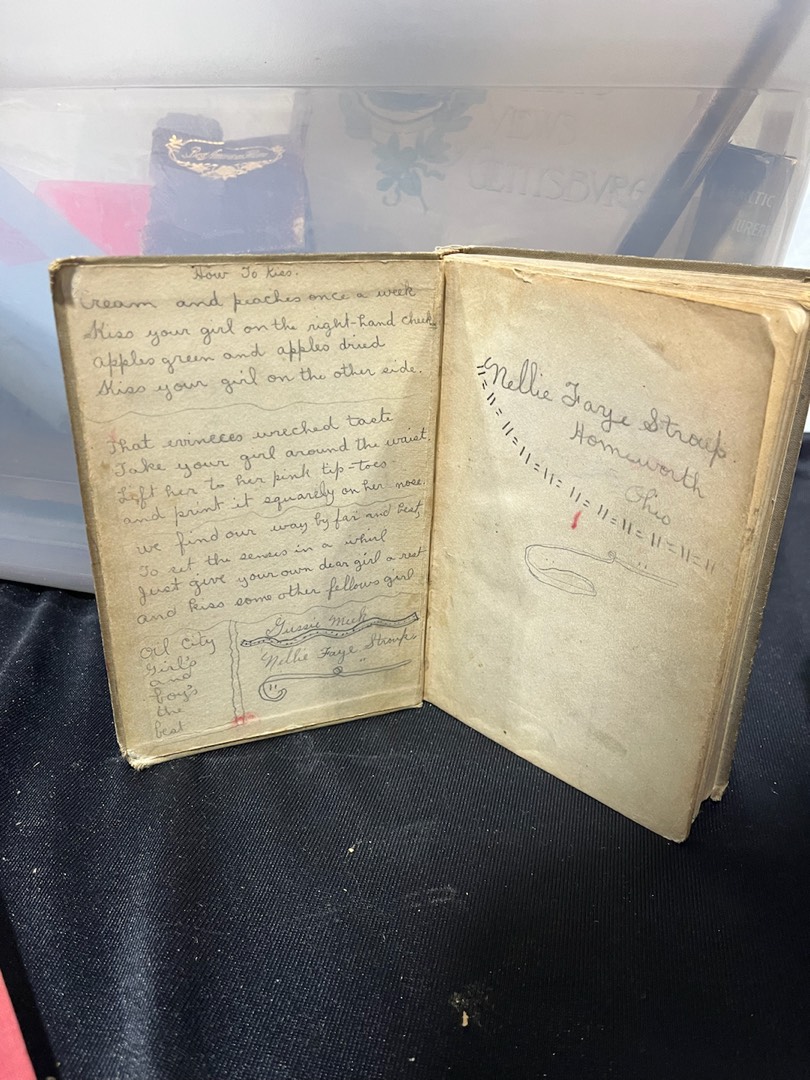 VIEWS
GETTYSBURG
How To Kiss.
Cream and peaches once a week
Kiss your girl on the right-hand cheek
apples green and apples dried
Kiss your girl on the other side.
That evineces wreched taste
Take your girl around the waist,
Lift her to her pink tip-toes
and print it squarely on her nose.
we find our way by far and best,
To set the senses in a whirl
Just give your own dear girl a rest
and kiss some other fellows girl
Oil City
Girl's
and
boy's
the
best
Gussie
Nellie Faye Stroup.
Nellie Faye Stroup.
Homeworth
Ohio